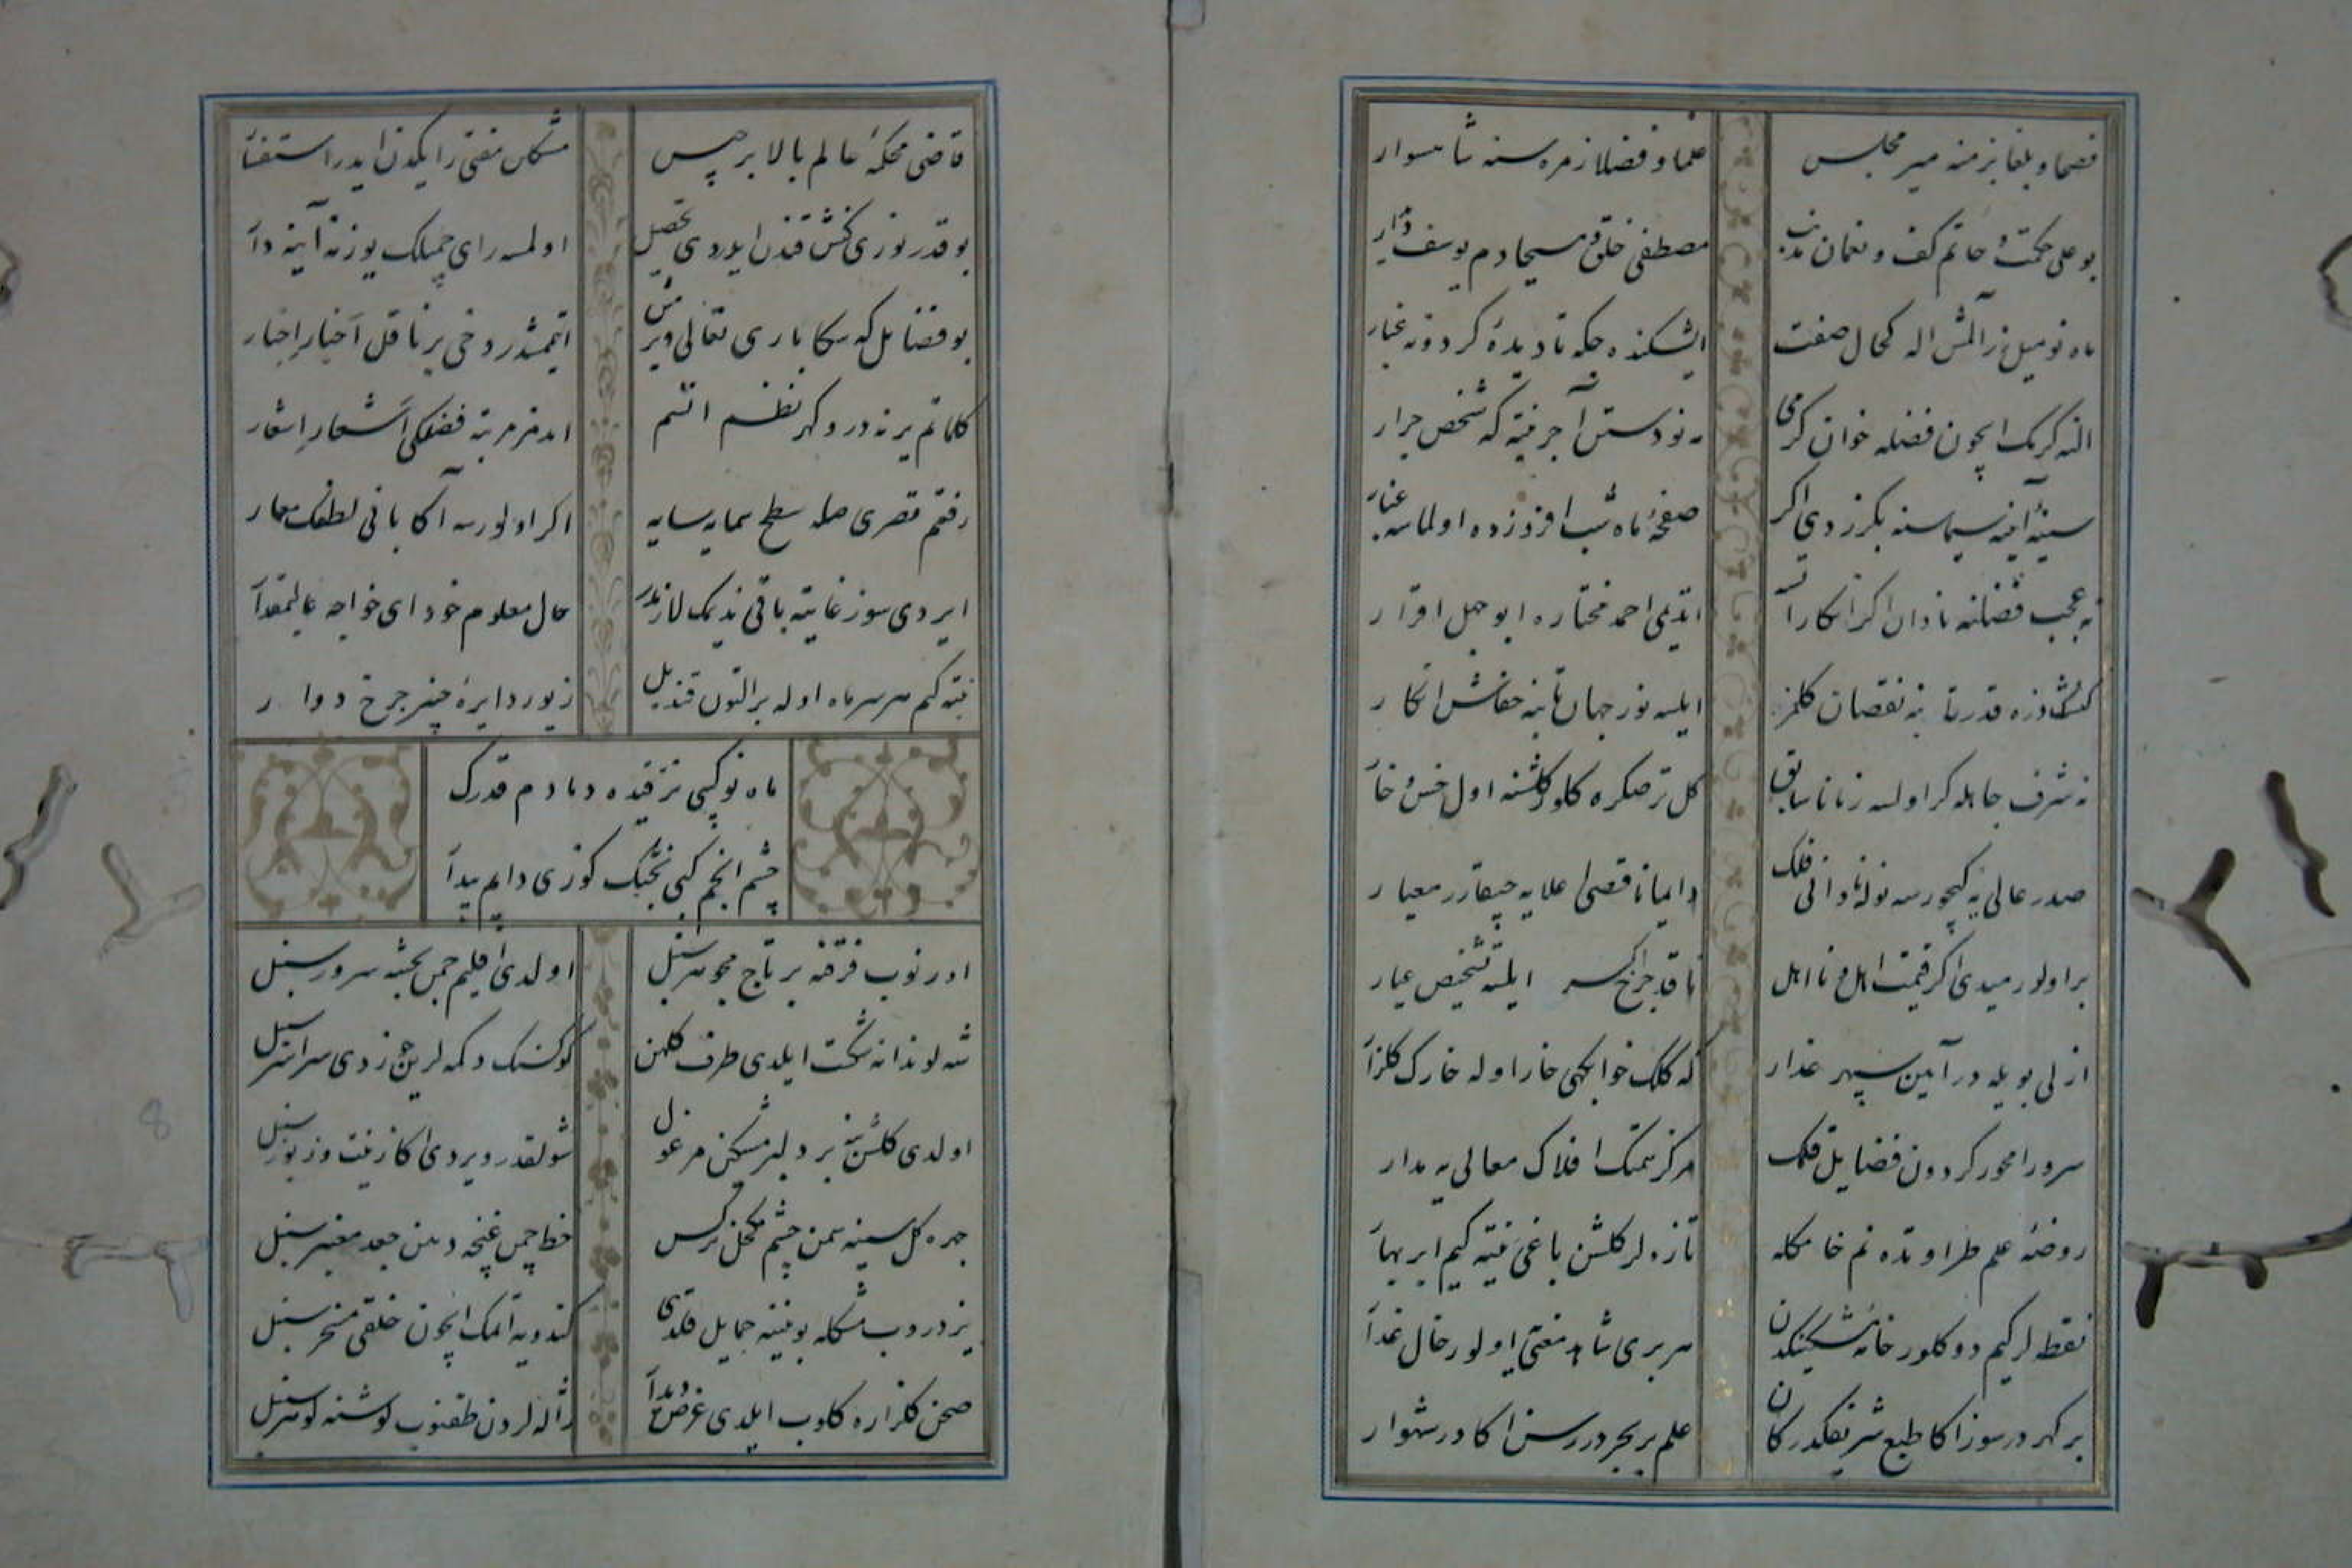 فصحا و بلغا بزمنه میر مجلس
علما و فضلا زمره سنه شاهسوار
بو علی حکمت و حاتم کف و نعمان مذهب
مصطفی خلق و مسیحا دم یوسف دیدار
ماه نو میل زر آلمش اله کحال صفت
ایشیکنده چکه تا دیدهٔ کردونه غبار
النه کرمک ایچون فضله خوان کرمی
مه نو دستن آچر نیته که شخص جرار
سینهٔ آینه سیماسنه بکزردی اکر
صفحهٔ ماه شب افروزده اولماسه غبار
نه عجب فضلنه نادان اکر انکار ایتسه
ایتدیمی احمد مختاره ابو جهل اقرار
کونش ذره قدر تابنه نقصان کلمز
ایلسه نور جهان تابنه خفاش انکار
نه شرف جاهله کر اولسه زمانا سابق
کل تر صکره کلور کلشنه اول خس و خار
صدر عالی یه کچورسه نوله نادانی فلک
دایما ناقصی اعلایه چیقارر معیار
بر اولورمیدی اکر قیمت اهل و نا اهل
ناقد چرخ اکر ایلسه تشخیص عیار
ازلی بویله در آیین سپهر غدار
که کلک خوابکهی خار اوله خارک کلزار
سرورا محور کردون فضایل قلمک
مرکز همتک افلاک معالی یه مدار
روضهٔ علم طراوتده نم خامکله
تازه لر کلشن باغی نیته کیم ابر بهار
نقطه لر کیم دوکلور خامهٔ مشکینکدن
هر بری شاهد معنی یه اولور خال عذار
بر کهر در سوز اکا طبع شریفکدر کان
علم بر بحردر سن اکا در شهوار
قاضی محکمهٔ عالم بالا برجیس
مشکلن مفتی رایکدن ایدر استفسار
بو قدر نوری کونش قندن ایدردی تحصیل
اولمسه رای جمیلک یوزنه آینه دار
بو فضایل که سکا باری تعالی ویرمش
ایتمشدر دخی بر ناقل اخبار اخبار
کلماتم یرنه در و کهر نظم اتسم
ایدمز مرتبهٔ فضلکی اشعار اشعار
رفعتم قصری صله سطح سمایه سایه
اکر اولورسه آکا بانی لطفک معمار
ایردی سوز غایته باقی ندیمک لازمدر
حال معلوم خود ای خواجهٔ عالیمقدار
نیته کم هر سر ماه اوله بر التون قندیل
زیور دایرهٔ چنبر چرخ دوار
ماه نو کبی ترقیده دمادم قدرک
چشم انجم کبی بختک کوزی دایم بیدار
اورنوب فرقنه بر تاج مجوهر سنبل
اولدی اقلیم چمن تختنه سرور سنبل
شه لوندانه نشست ایلدی طرف کلمن
کوکسنک دکمه لرین چوزدی سراسر سنبل
اولدی کلشن ینه بر دلبر مشکین مرغول
شولقدر ویردی اکا زینت و زیور سنبل
چهره کل سینه سمن چشم مکحل نرکس
خط چمن غنچه دهن جعد معنبر سنبل
یزدروب مشکله بویننه حمایل قلدی
کندویه آلمک ایچون خلقی مسخر سنبل
صحن کلزاره کلوب ایلدی عرض دیدار
ژاله لردن طقنوب کوشنه کوهر سنبل